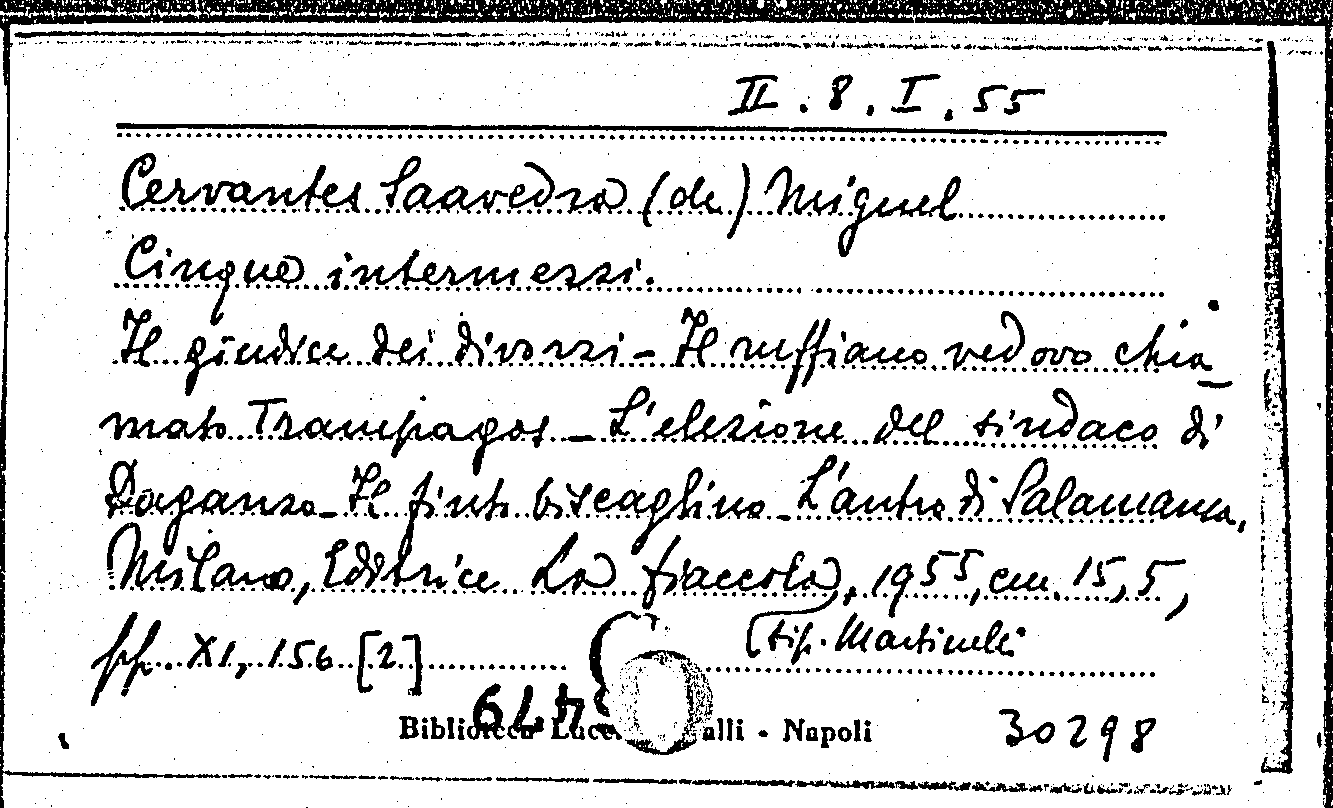 II. 8. I. 55
Cervantes Saavedra (de) Miguel
Cinque intermezzi.
Il giudice dei divorzi - Il ruffiano vedovo chia-
mato Trampagos - L'elezione del sindaco di
Daganzo - Il finto biscaglino - L'antro di Salamanca,
Milano, Editrice La fiaccola, 1955, cm. 15,5,
(tip. Martinelli
pp. XI, 156 [2]
Biblioteca alli - Napoli
30298